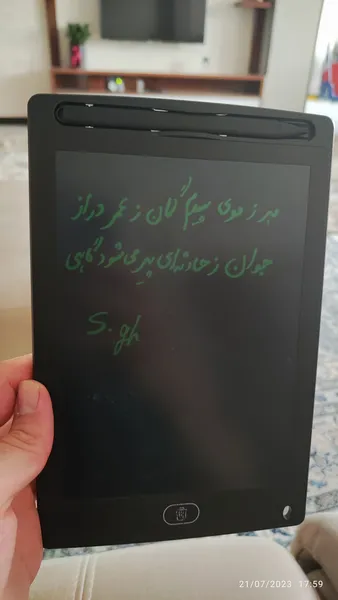 مبر ز موی سپیدم گمان ز عمر دراز
جوان ز حادثه‌ای پیر می‌شود گاهی
S. gh
21/07/2023 17:59